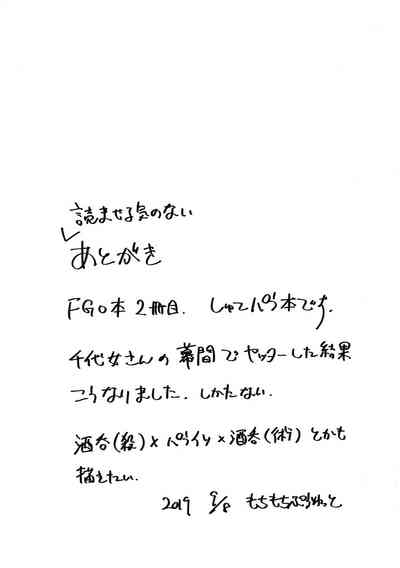 読ませる気のない
あとがき
FGO本2冊目. しゅてパラ本です.
千代女さんの幕間でヤッターした結果
こうなりました. しかたない.
酒呑(殺)×パライソ×酒呑(術)とかも
描きたい.
2019 9/8 もちもちぷりねっと